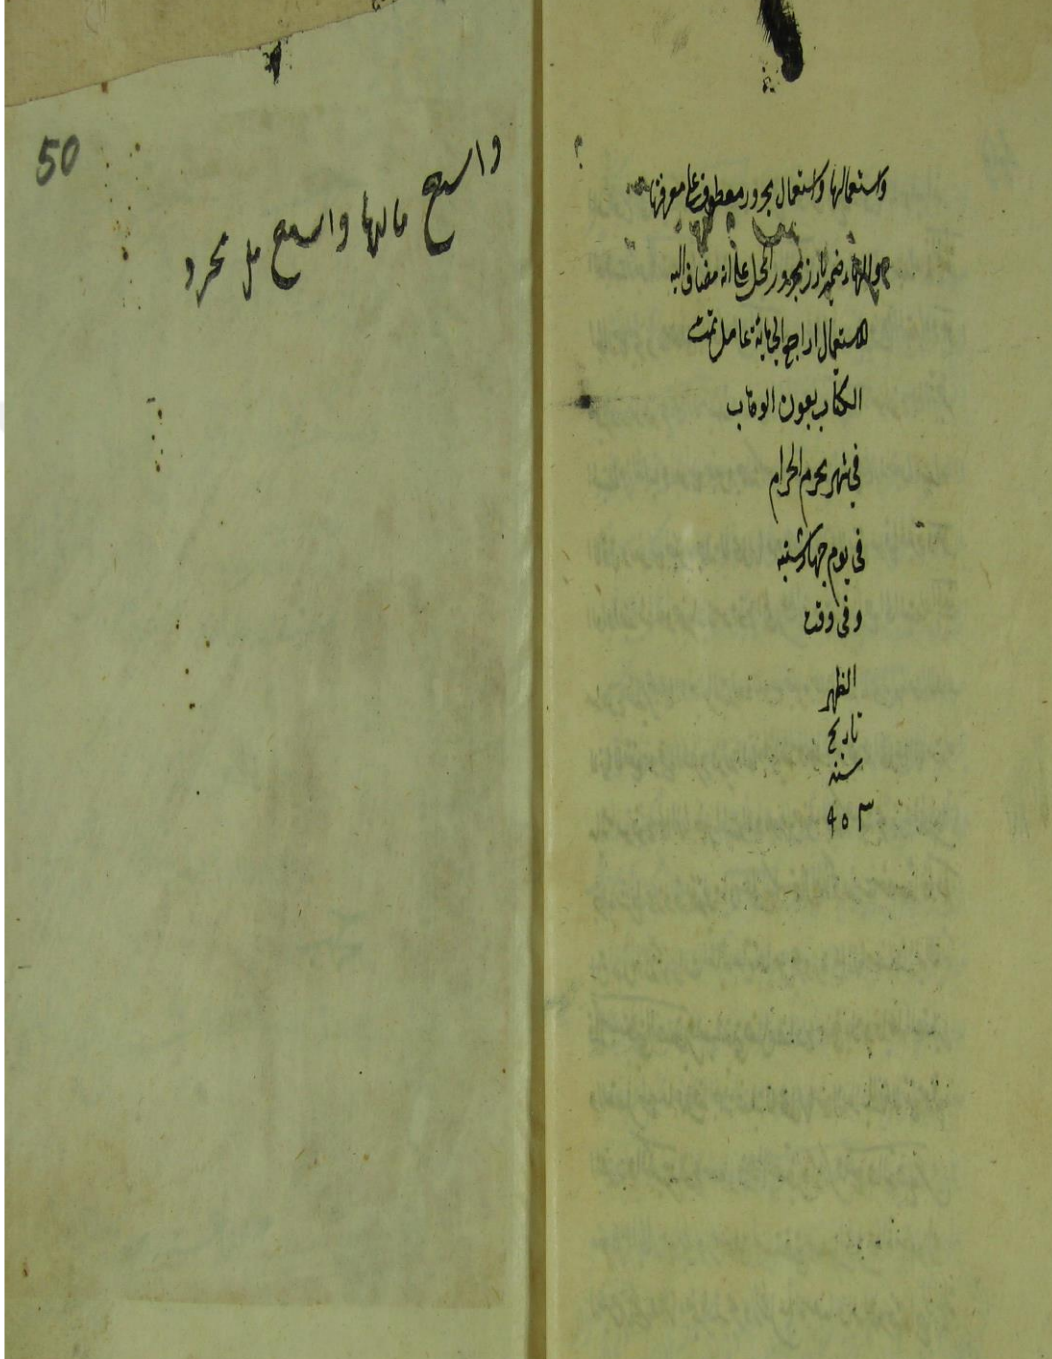 واستعمالها واستعمال مجرور معطوف على معرفتها
والهاء ضمير بارز مجرور المحل على انه مضاف اليه
لاستعمال راجع الى مائة عامل تمت
الكتاب بعون الوهاب
فى شهر محرم الحرام
فى يوم چهارشنبه
وفى وقت
الظهر
تاريخ
سنه
٩٥٣
50